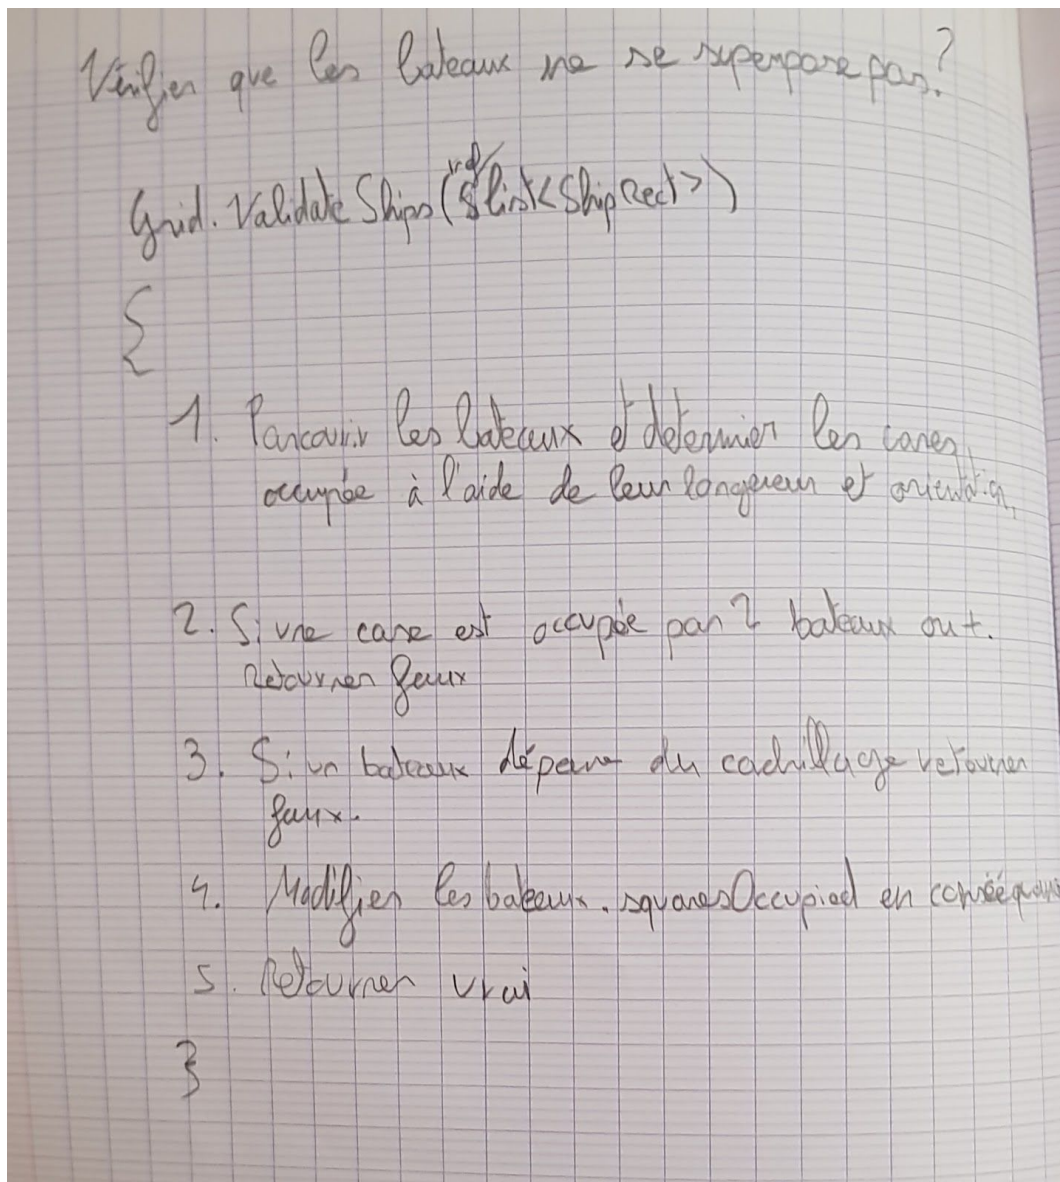 Vérifier que les bateaux ne se superpose pas ?
Grid.ValidateShips(ref list<ShipRect>)
{
1. Parcourir les bateaux et détermier les cases
occupée à l'aide de leur longueur et orientation,
2. Si une case est occupée par 2 bateaux ou +.
Retourner faux
3. Si un bateaux dépasse du cadrillage retourner
faux.
4. Modifier les bateaux.squaresOccupied en conséquence
5. Retourner vrai
}